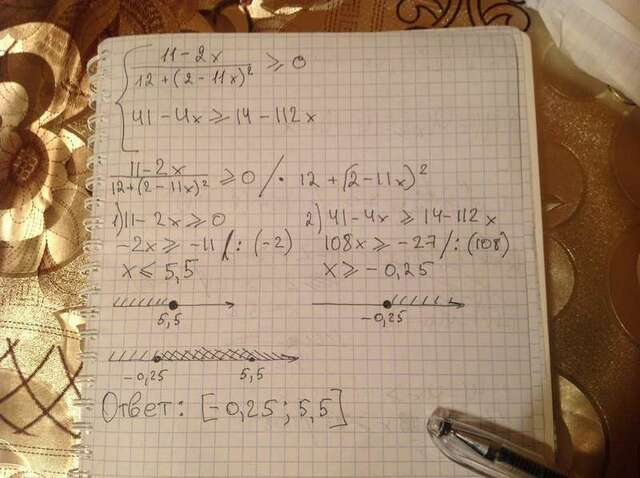 { (11 - 2x)/(12 + (2 - 11x)²) ⩾ 0
41 - 4x ⩾ 14 - 112x
(11 - 2x)/(12 + (2 - 11x)²) ⩾ 0 / · 12 + (2 - 11x)²
1) 11 - 2x ⩾ 0
-2x ⩾ -11 /: (-2)
x ⩽ 5,5
5,5
2) 41 - 4x ⩾ 14 - 112x
108x ⩾ -27 /: (108)
x ⩾ -0,25
-0,25
-0,25 5,5
Ответ: [-0,25; 5,5]